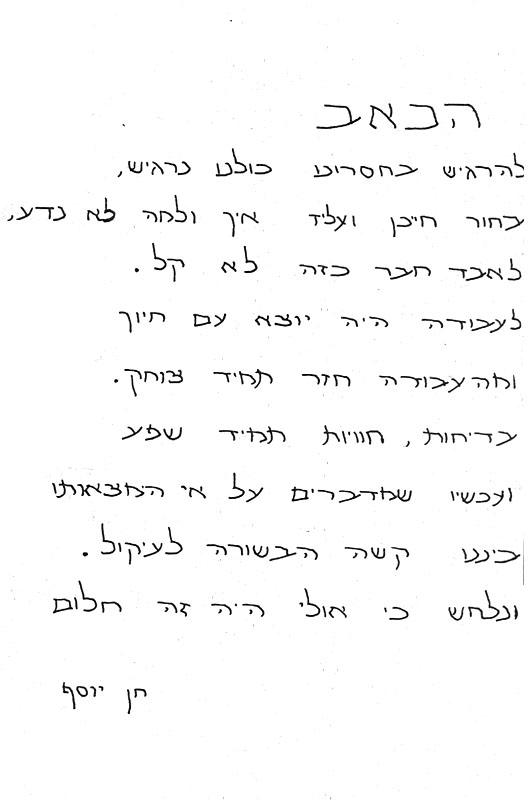 הכאב
להרגיש בחסרינו כולנו נרגיש,
בחור חייכן ועליז איך ולמה לא נדע,
לאבד חבר כזה לא קל.
לעבודה היה יוצא עם חיוך
ומהעבודה חזר תמיד צוחק.
בדיחות, חוויות תמיד שפע
ועכשיו שמדברים על אי המצאותו
ביננו קשה הבשורה לעיקול.
ונלחש כי אולי היה זה חלום
חן יוסף